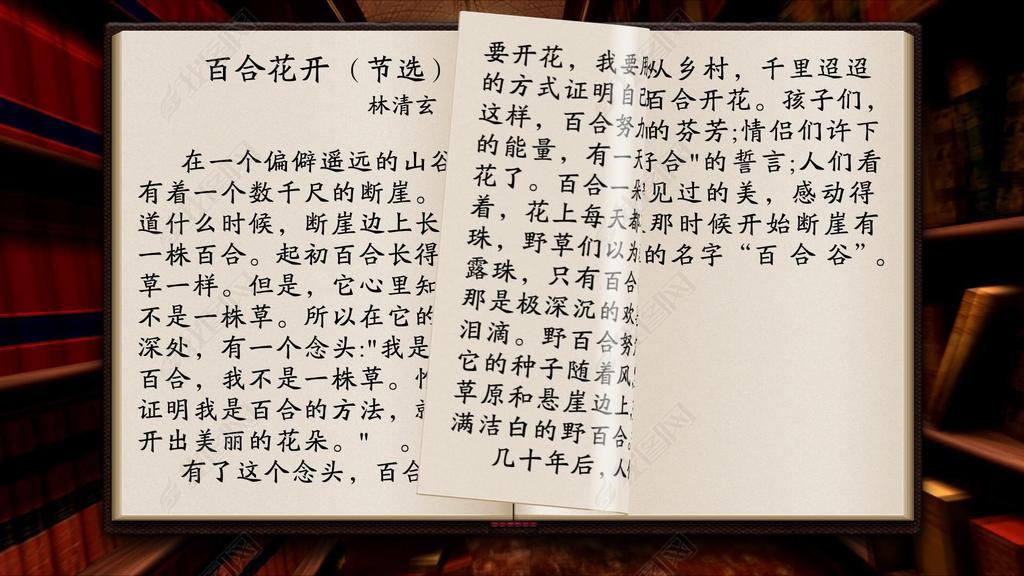 百合花开（节选）
林清玄
在一个偏僻遥远的山谷
有着一个数千尺的断崖。
道什么时候，断崖边上长
一株百合。起初百合长得
草一样。但是，它心里知
不是一株草。所以在它的
深处，有一个念头:"我是
百合，我不是一株草。
证明我是百合的方法，
开出美丽的花朵。" 。
有了这个念头，百合
要开花，我要
的方式证明自己
这样，百合努力
的能量，有一天
花了。百合一
着，花上每天都
珠，野草们以为
露珠，只有百合
那是极深沉的欢
泪滴。野百合努
它的种子随着风
草原和悬崖边上
满洁白的野百合。
几十年后，人
从乡村，千里迢迢
百合开花。孩子们，
的芬芳;情侣们许下
合"的誓言;人们看
见过的美，感动得
那时候开始断崖有
的名字“百合谷”。